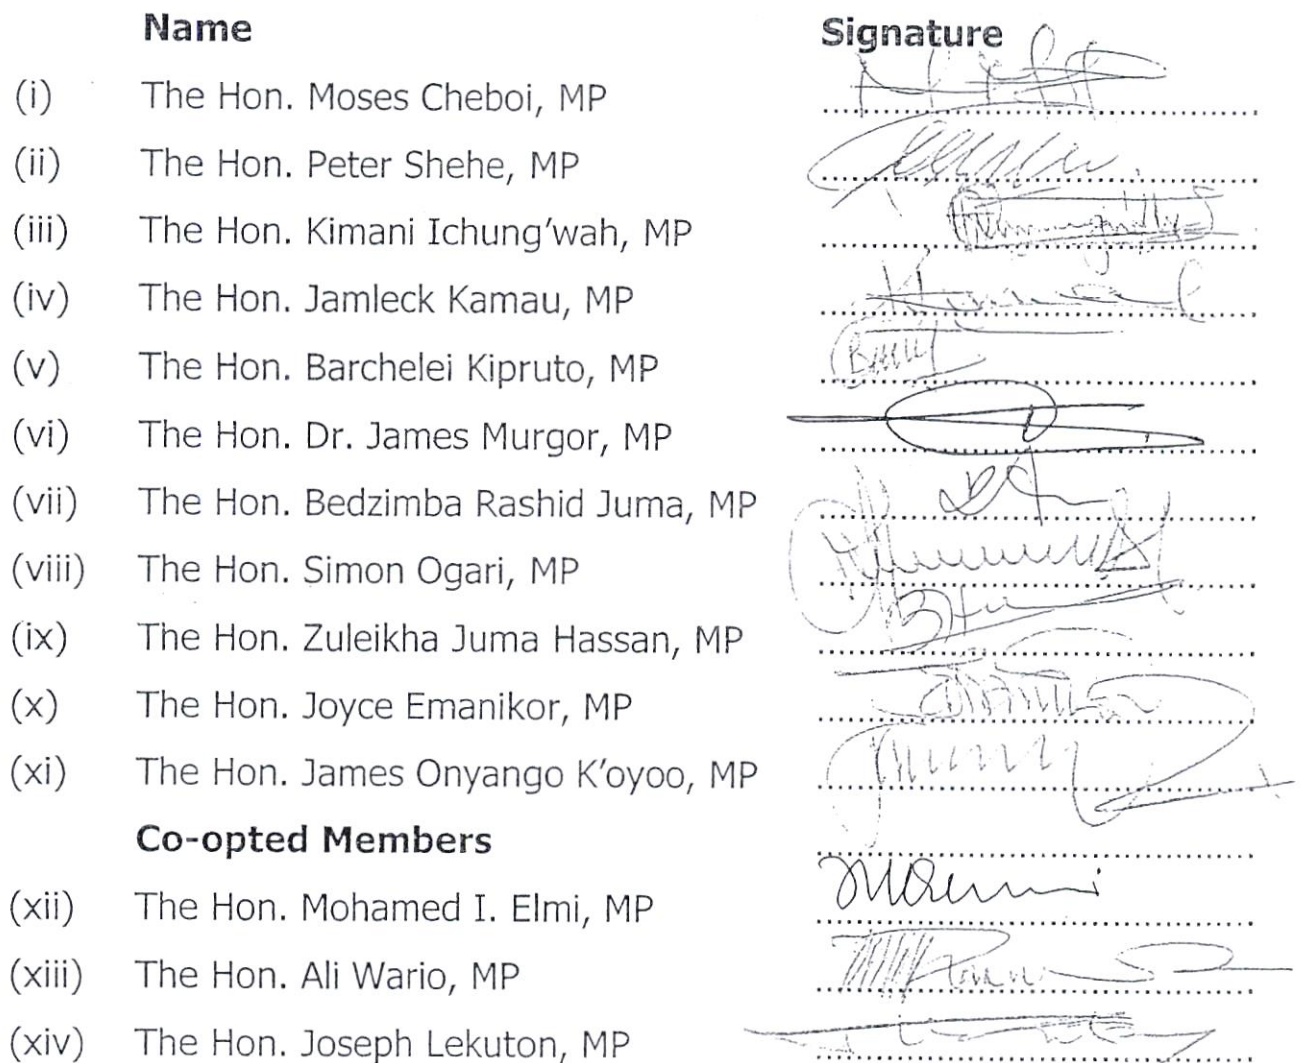 Name Signature
(i) The Hon. Moses Cheboi, MP
(ii) The Hon. Peter Shehe, MP
(iii) The Hon. Kimani Ichung'wah, MP
(iv) The Hon. Jamleck Kamau, MP
(v) The Hon. Barchelei Kipruto, MP
(vi) The Hon. Dr. James Murgor, MP
(vii) The Hon. Bedzimba Rashid Juma, MP
(viii) The Hon. Simon Ogari, MP
(ix) The Hon. Zuleikha Juma Hassan, MP
(x) The Hon. Joyce Emanikor, MP
(xi) The Hon. James Onyango K'oyoo, MP
Co-opted Members
(xii) The Hon. Mohamed I. Elmi, MP
(xiii) The Hon. Ali Wario, MP
(xiv) The Hon. Joseph Lekuton, MP